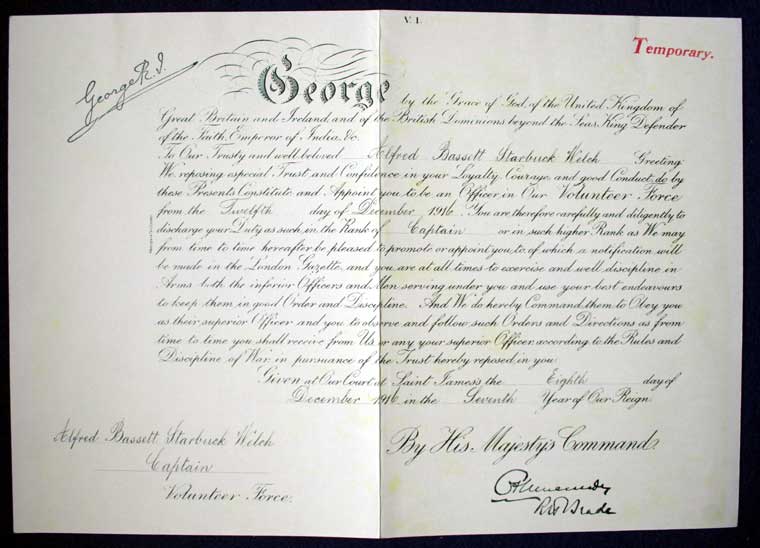 V. 1.
Temporary.
George R. I.
George by the Grace of God, of the United Kingdom of
Great Britain and Ireland, and of the British Dominions beyond the Seas, King, Defender
of the Faith, Emperor of India, &c.
To Our Trusty and well beloved Alfred Bassett Starbuck Welch Greeting:
We reposing especial Trust and Confidence in your Loyalty, Courage, and good Conduct, do by
these Presents Constitute and Appoint you to be an Officer in Our Volunteer Force
from the Twelfth day of December 1916. You are therefore carefully and diligently to
discharge your Duty as such, in the Rank of Captain or in such higher Rank as We may
from time to time hereafter be pleased to promote or appoint you to, of which a notification will
be made in the London Gazette, and you are at all times to exercise and well discipline in
Arms both the inferior Officers and Men serving under you and use your best endeavours
to keep them in good Order and Discipline. And We do hereby Command them to Obey you
as their superior Officer and you to observe and follow such Orders and Directions as from
time to time you shall receive from Us, or any your superior Officer, according to the Rules and
Discipline of War, in pursuance of the Trust hereby reposed in you.
Given at Our Court at Saint James's the Eighth day of
December 1916 in the Seventh Year of Our Reign
Alfred Bassett Starbuck Welch
Captain
Volunteer Force.
By His Majesty's Command.
R H Brade